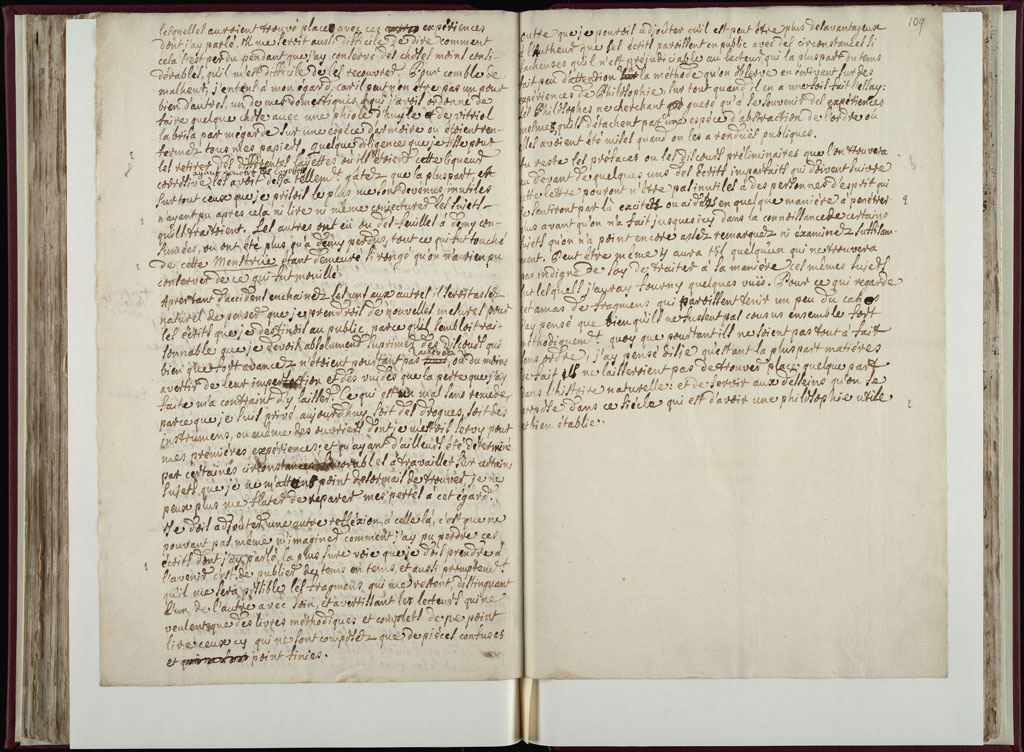 lesquelles auroient trouvé place avec ces expériences
dont j'ay parlé. Il me seroit aussi difficile de dire comment
cela s'est perdu pendant que j'ay conservé des choses moins consi-
dérables, qu'il m'est difficile de les recouvrer. Pour comble de
malheur, j'entens à mon égard, car il peut n'en être pas un pour
bien d'autres, un de mes domestiques, à qui j'avois ordonné de
faire quelque chose avec une phiole d'huyle de vitriol
la brisa par mégarde sur une espèce d'armoire où étoient ren-
fermez tous mes papiers, quelque diligence que je fisse pour
les retirer des différentes layettes où ils étoient cette liqueur
corrosive les avoit déja tellemt gâtez que la pluspart, et
sur tout ceux que je prisois le plus me sont devenus inutiles
n'ayant pu après cela ni lire ni même conjecturer les sujets
qu'ils traittoient. Les autres ont eu ou des feuilles à demy con-
sumées, ou ont été plus qu'à demy perdus, tout ce qui fut touché
de cette Menstrue étant demeuré si rongé qu'on n'a rien pu
conserver de ce qui fut mouillé.
Après tant d'accidents enchainez les uns aux autres il seroit assez
naturel de penser que je prendrois de nouvelles mesures pour
les écrits que je destinois au public, parce qu'il sembloit rai-
sonnable que je devois absolument supprimer des discours qui
bien que fort avancez n'étoient pourtant pas achevez, ou du moins
avertir de leur imperfection et des vuides que la perte que j'ay
faite m'a contraint d'y laisser. Ce qui est un mal sans remède,
parce que je suis privé aujourdhuy soit des drogues, soit des
instrumens, ou même des ouvriers dont je m'étois servy pour
mes premières expériences; et qu'ayant d'ailleurs été déterminé
par certaines circonstances favorables à travailler sur certains
sujets que je ne m'attens point désormais de trouver, je ne
peux plus me flater de réparer mes pertes à cet égard.
Je dois adjouter une autre reflexion à celle là, c'est que ne
pouvant pas même m'imaginer comment j'ay pu perdre ces
écrits dont j'ay parlé, la plus sure voie que je dois prendre à
l'avenir c'est de publier de tems en tems, et aussi promptement
qu'il me sera possible les fragmens qui me restent distinguant
l'un de l'autre avec soin, et avertissant les lecteurs qui ne
veulent que des livres méthodiques et complets de ne point
lire ceux cy qui ne sont composez que de pièces confuses
et point finies.
109
outre que je pourois adjouter qu'il est peut être plus desavantageux
à l'autheur que ses écrits paroissent en public avec des circonstances si
facheuses qu'il n'est préjudiciable au lecteur, qui la pluspart du tems
fait peu d'attention à la méthode qu'on observe en écrivant sur des
expériences de Philosophie, sur tout quand il en a une fois fait l'essay:
les Philosophes ne cherchant guere qu'à se souvenir des expériences
mêmes, qu'ils détachent par une espèce d'abstraction de l'ordre où
elles avoient été mises quand on les a rendues publiques.
Au reste les préfaces ou les discours préliminaires que l'on trouvera
au devant de quelques uns des écrits imparfaits qui doivent suivre
cette lettre pouront n'être pas inutiles à des personnes d'esprit qui
se sentiront par là excitez ou aidez en quelque manière à pénétrer
plus avant qu'on n'a fait jusques icy dans la connoissance de certains
sujets qu'on n'a point encore assez remarquez ni examinez suffisam-
ment. Peut être même y aura t'il quelqu'un qui ne trouvera
pas indigne de soy de traiter à sa manière ces mêmes sujets
sur lesquels j'auray fourny quelques vues. Pour ce qui regarde
cet amas de fragmens qui paroissent tenir un peu du cahos
j'ay pensé que bien qu'ils ne fussent pas cousus ensemble fort
méthodiquemt quoy que pourtant ils ne soient pas tout à fait
sans ordre; j'ay pensé dis je qu'étant la pluspart matières
de fait ils ne laisseroient pas de trouver place quelque part
dans l'histoire naturelle: et de servir aux desseins qu'on se
propose dans ce siécle qui est d'avoir une philosophie utile
et bien établie.